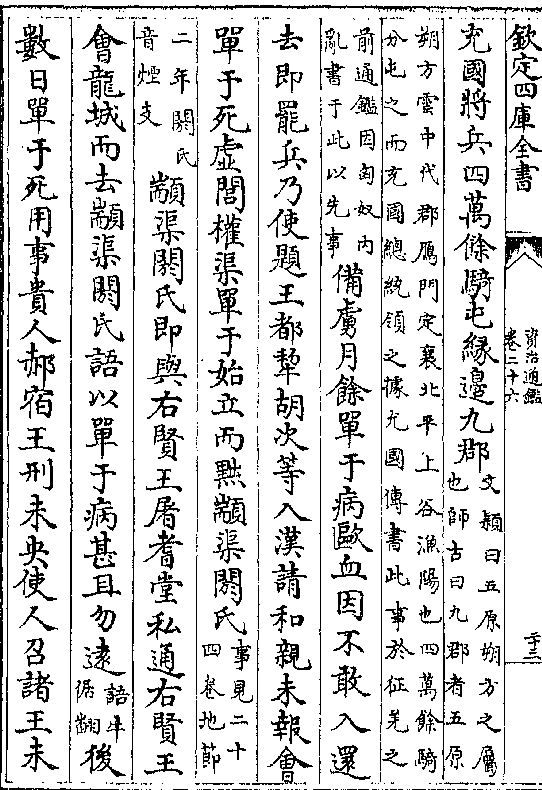 欽定四庫全書
資治通鑑
卷二十六
二十三
充國將兵四萬餘騎屯緣邊九郡文穎曰五原朔方之屬
也師古曰九郡者五原
朔方雲中代郡鴈門定襄北平上谷漁陽也四萬餘騎
分屯之而充國總統領之據充國傳書此事於征羌之
前通鑑因匈奴内
亂書于此以先事
備虜月餘單于病歐血因不敢入還
去即罷兵乃使題王都犂胡次等入漢請和親未報會
單于死虛閭權渠單于始立而黜顓渠閼氏事見二十
四卷地節
二年閼氏
音煙支
顓渠閼氏即與右賢王屠耆堂私通右賢王
會龍城而去顓渠閼氏語以單于病甚且勿遠語牛
倨翻
後
數日單于死用事貴人郝宿王刑未央使人召諸王未